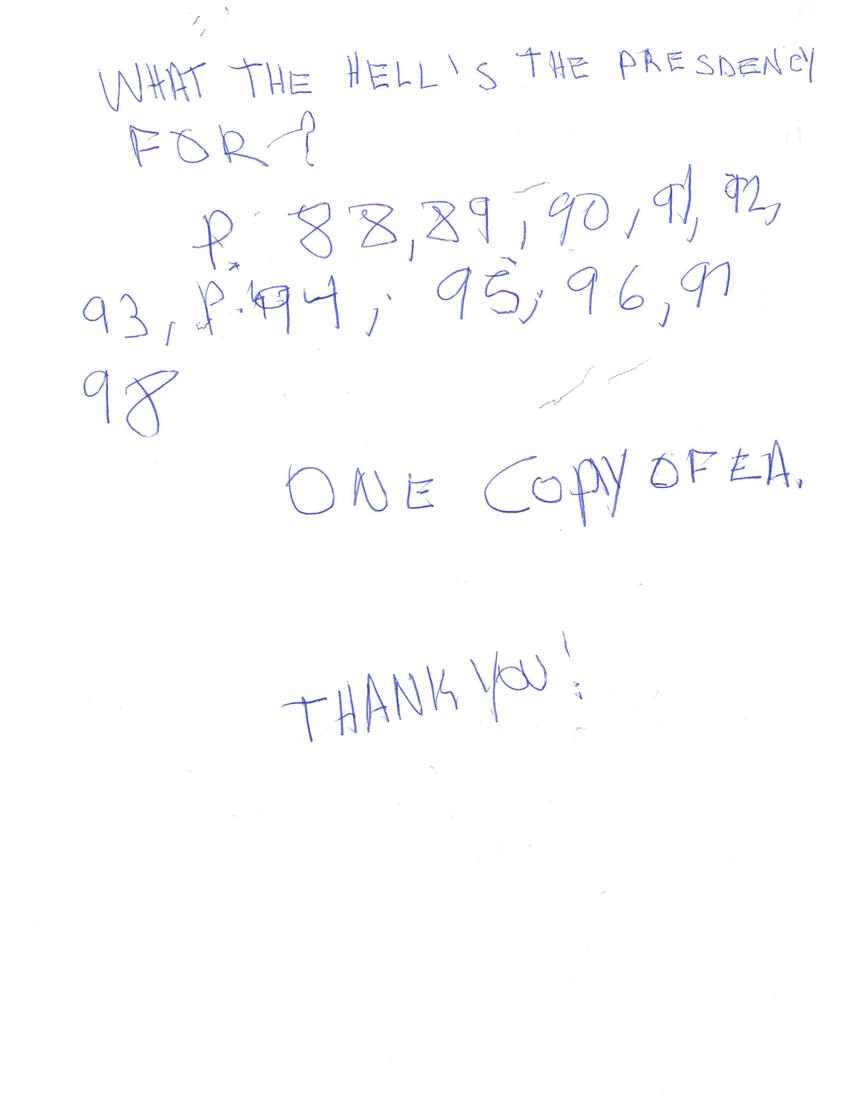 WHAT THE HELL'S THE PRESDENCY
FOR?
P. 88,89,90,91,92,
93, P. 94, 95, 96, 97
98
ONE COPY OF EA.
THANK YOU!